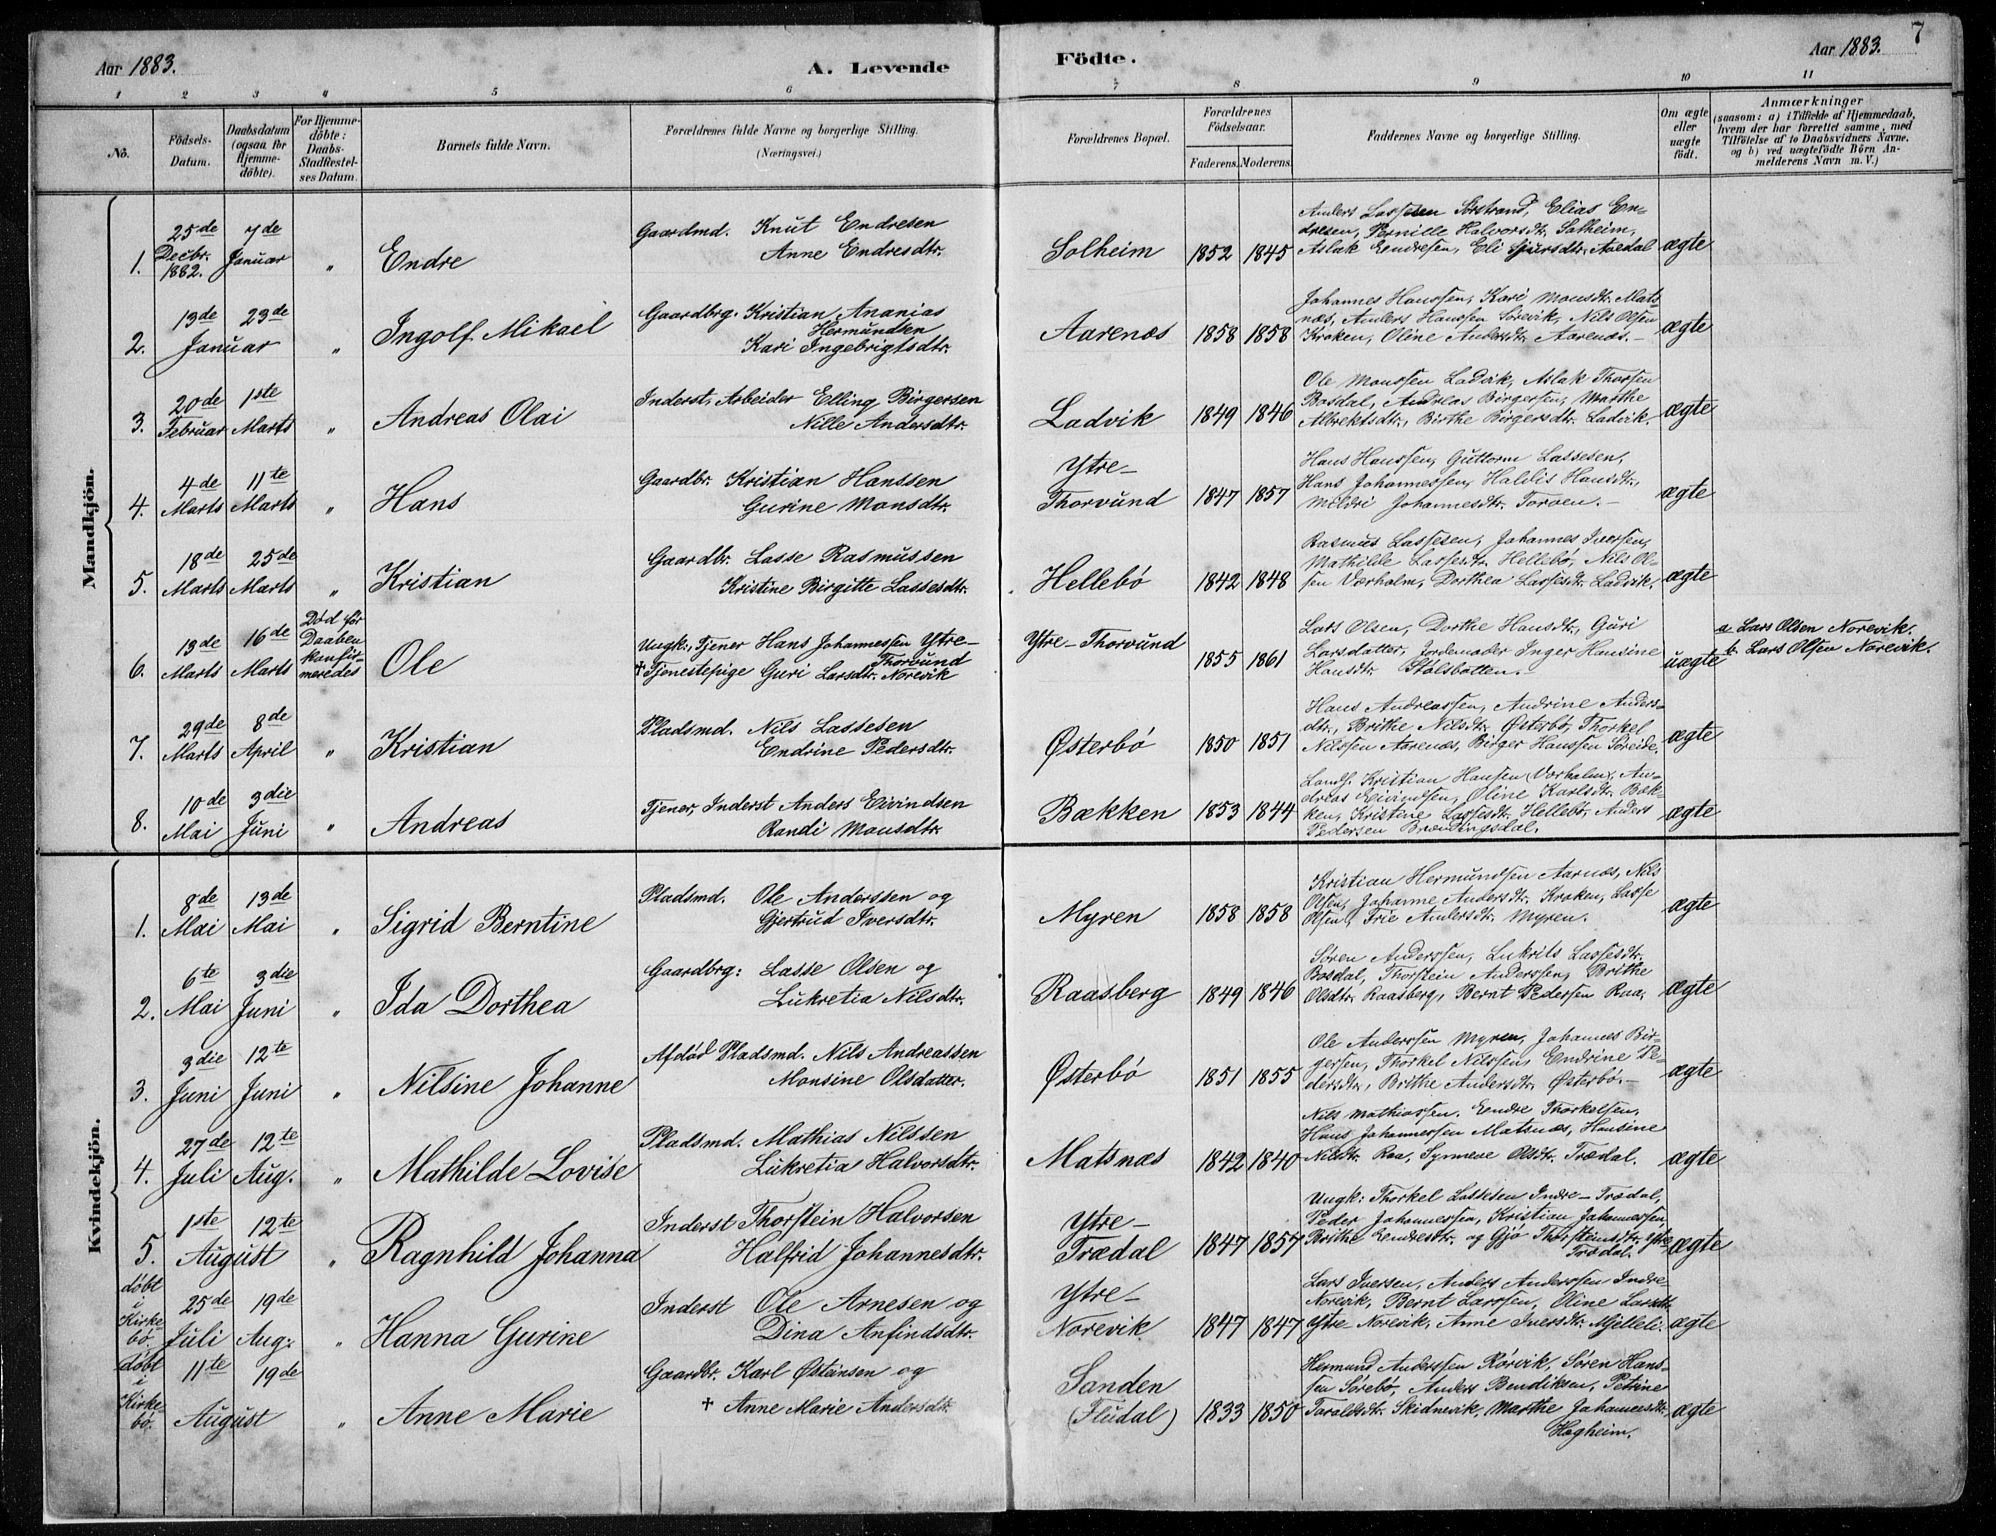 7
Aar 1883.
A. Levende
Födte.
Aar 1883.
1 2 3 4 5 6 7 8 9 10 11
No.
Födsels-
Datum.
Daabsdatum
(ogsaa for
Hjemme-
döbte).
For Hjemme-
döbte:
Daabs-
Stadfæstel-
ses Datum.
Barnets fulde Navn.
Forældrenes fulde Navne og borgerlige Stilling.
(Næringsvei.)
Forældrenes Bopæl.
Forældrenes
Födselsaar.
Faderens. Moderens.
Faddernes Navne og borgerlige Stilling.
Om ægte
eller
uægte
födt.
Anmærkninger
(saasom: a) i Tilfælde af Hjemmedaab,
hvem der har forrettet samme, med
Tilföielse af to Daabsvidners Navne.
og b) ved uægtefödte Börn An-
melderens Navn m. V.)
Mandkjön.
1. 25de Decbr. 1882. 7de Januar " Endre
Gaardmd. Knut Endresen
Anne Endresdtr.
Solheim 1852 1845
Anders Lassesen Sørstrand, Elias En-
dresen, Pernille Halvorsdtr. Solheim,
Aslak Endresen, Eli Sjursdtr. Aaedal
ægte
2. 13de 23de Januar " Ingolf Mikael
Gaardbrg. Kristian Ananias
Hermundsen
Kari Ingebrigtsdtr.
Aarenæs 1858 1858
Johannes Hanssen, Kari Monsdtr. Mats-
næs, Anders Hanssen Sørevik, Nils Olsen
Kraken, Oline Andersdtr. Aarenæs.-
ægte
3. 20de Februar 1ste Marts " Andreas Olai
Inderst, Arbeider Elling Birgersen
Nille Andersdtr.
Ladvik 1849 1846
Ole Monssen Ladvik, Aslak Thorsen
Bosdal, Andreas Birgersen, Marthe
Albrektsdtr., Birthe Birgersdtr. Ladvik.
ægte
4. 4de Marts 11te Marts " Hans
Gaardbr. Kristian Hanssen
Gurine Monsdtr.
Ytre-
Thorvund 1847 1857
Hans Hanssen, Guttorm Lassesen,
Hans Johannessen, Haldis Hansdtr.,
Mildri Johannesdtr. Torven.-
ægte
5. 18de Marts 25de Marts " Kristian
Gaardbr. Lasse Rasmussen
Kristine Birgitte Lassesdtr.
Hellebö 1842 1848
Rasmus Lassesen, Johannes Iversen,
Mathilde Lassesdtr. Hellebö, Nils Ol-
sen Værholm, Dorthea Larsesdtr. Ladvik.
ægte
6. 13de Marts 16de Marts
Død før
Daaben
konfir-
meredes
Ole
Ungk., Tjener Hans Johannessen Ytre-
Thorvund
† Tjenestepige Guri Larsdtr. Norevik
Ytre-Thorvund 1855 1861
Lars Olsen, Dorthe Hansdtr., Guri
Larsdatter, Jordemoder Inger Hansine
Hansdtr. Stølsbotten.-
uægte
a. Lars Olsen Norevik.
b. Lars Olsen Norevik.
7. 29de Marts 8de April " Kristian
Pladsmd. Nils Lassesen
Endrine Pedersdtr.
Østerbö 1850 1851
Hans Andreassen, Andrine Anders-
dtr., Brithe Nilsdtr. Østerbö, Thorkel
Nilssen Aarenæs, Birger Hanssen Søreide.
ægte
8. 10de Mai 3die Juni " Andreas
Tjener, Inderst Anders Eivindsen
Randi Monsdtr.
Bækken 1853 1844
Landh. Kristian Hansen (Værholm), An-
dreas Eivindsen, Oline Karlsdtr. Bæk-
ken, Kristine Lassesdtr. Hellebö, Anders
Pedersen Brendingsdal.
ægte
Kvindekjön.
1. 8de Mai 13de Mai " Sigrid Berntine
Pladsmd. Ole Anderssen og
Gjertrud Iversdtr.
Myren 1858 1858
Kristian Hermundsen Aarnæs, Nils
Olsen, Johanne Andersdtr. Kraken, Lasse
Olsen, Frie Andersdtr. Myren.
ægte
2. 6te Mai 3die Juni " Ida Dorthea
Gaardbrg: Lasse Olsen og
Lukretia Nilsdtr.
Raasberg 1849 1846
Søren Anderssen, Lukrits Lassesdtr.
Bosdal, Thorstein Anderssen, Brithe
Olsdtr. Raasberg, Bernt Pedersen Raa,
ægte
3. 3die Juni 12te Juni " Nilsine Johanne
Afdød Pladsmd. Nils Andreassen
Monsine Olsdatter.
Østerbö 1851 1855
Ole Anderssen Myren, Johannes Bir-
gersen, Thorkel Nilssen, Endrine Pe-
dersdtr., Brithe Andersdtr. Østerbö.-
ægte
4. 27de Juli 12te Aug. " Mathilde Lovise
Pladsmd. Mathias Nilssen
Lukretia Halvorsdtr.
Matsnæs 1842 1840
Nils Mathiassen, Endre Thorkelsen,
Hans Johannessen Matsnæs, Hansine
Nilsdtr. Raa, Synneve Olsdtr. Trædal.
ægte
5. 1ste 12te August " Ragnhild Johanna
Inderst Thorstein Halvorsen
Halfrid Johannesdtr.
Ytre-
Trædal 1847 1857
Ungk: Thorkel Lassesen Indre-Trædal,
Peder Johannessen, Kristian Johannessen,
Brithe Endresdtr. og Gjø Thorsteinsdtr. Ytre-
Trædal.
ægte
døbt
i
Kirke-
bø.
25de Juli 19de Aug: " Hanna Gurine
Inderst Ole Arnesen og
Dina Anfindsdtr.
Ytre-
Norevik 1847 1847
Lars Iversen, Anders Anderssen Indre
Norevik, Bernt Larssen, Oline Larsdtr.
Ytre Norevik, Anne Iversdtr. Mjelleli.
ægte
døbt
i
Kirke-
bø.
11te 19de August " Anne Marie
Gaardbr. Karl Østensen og
† Anne Marie Andersdtr.
Sanden
(Fludal) 1833 1850
Hermund Anderssen Rørvik, Søren Hans-
sen Sørebö, Anders Bendiksen, Petrine
Taraldsdtr. Skidnevik, Marthe Johannesdtr.
Hagheim.
ægte